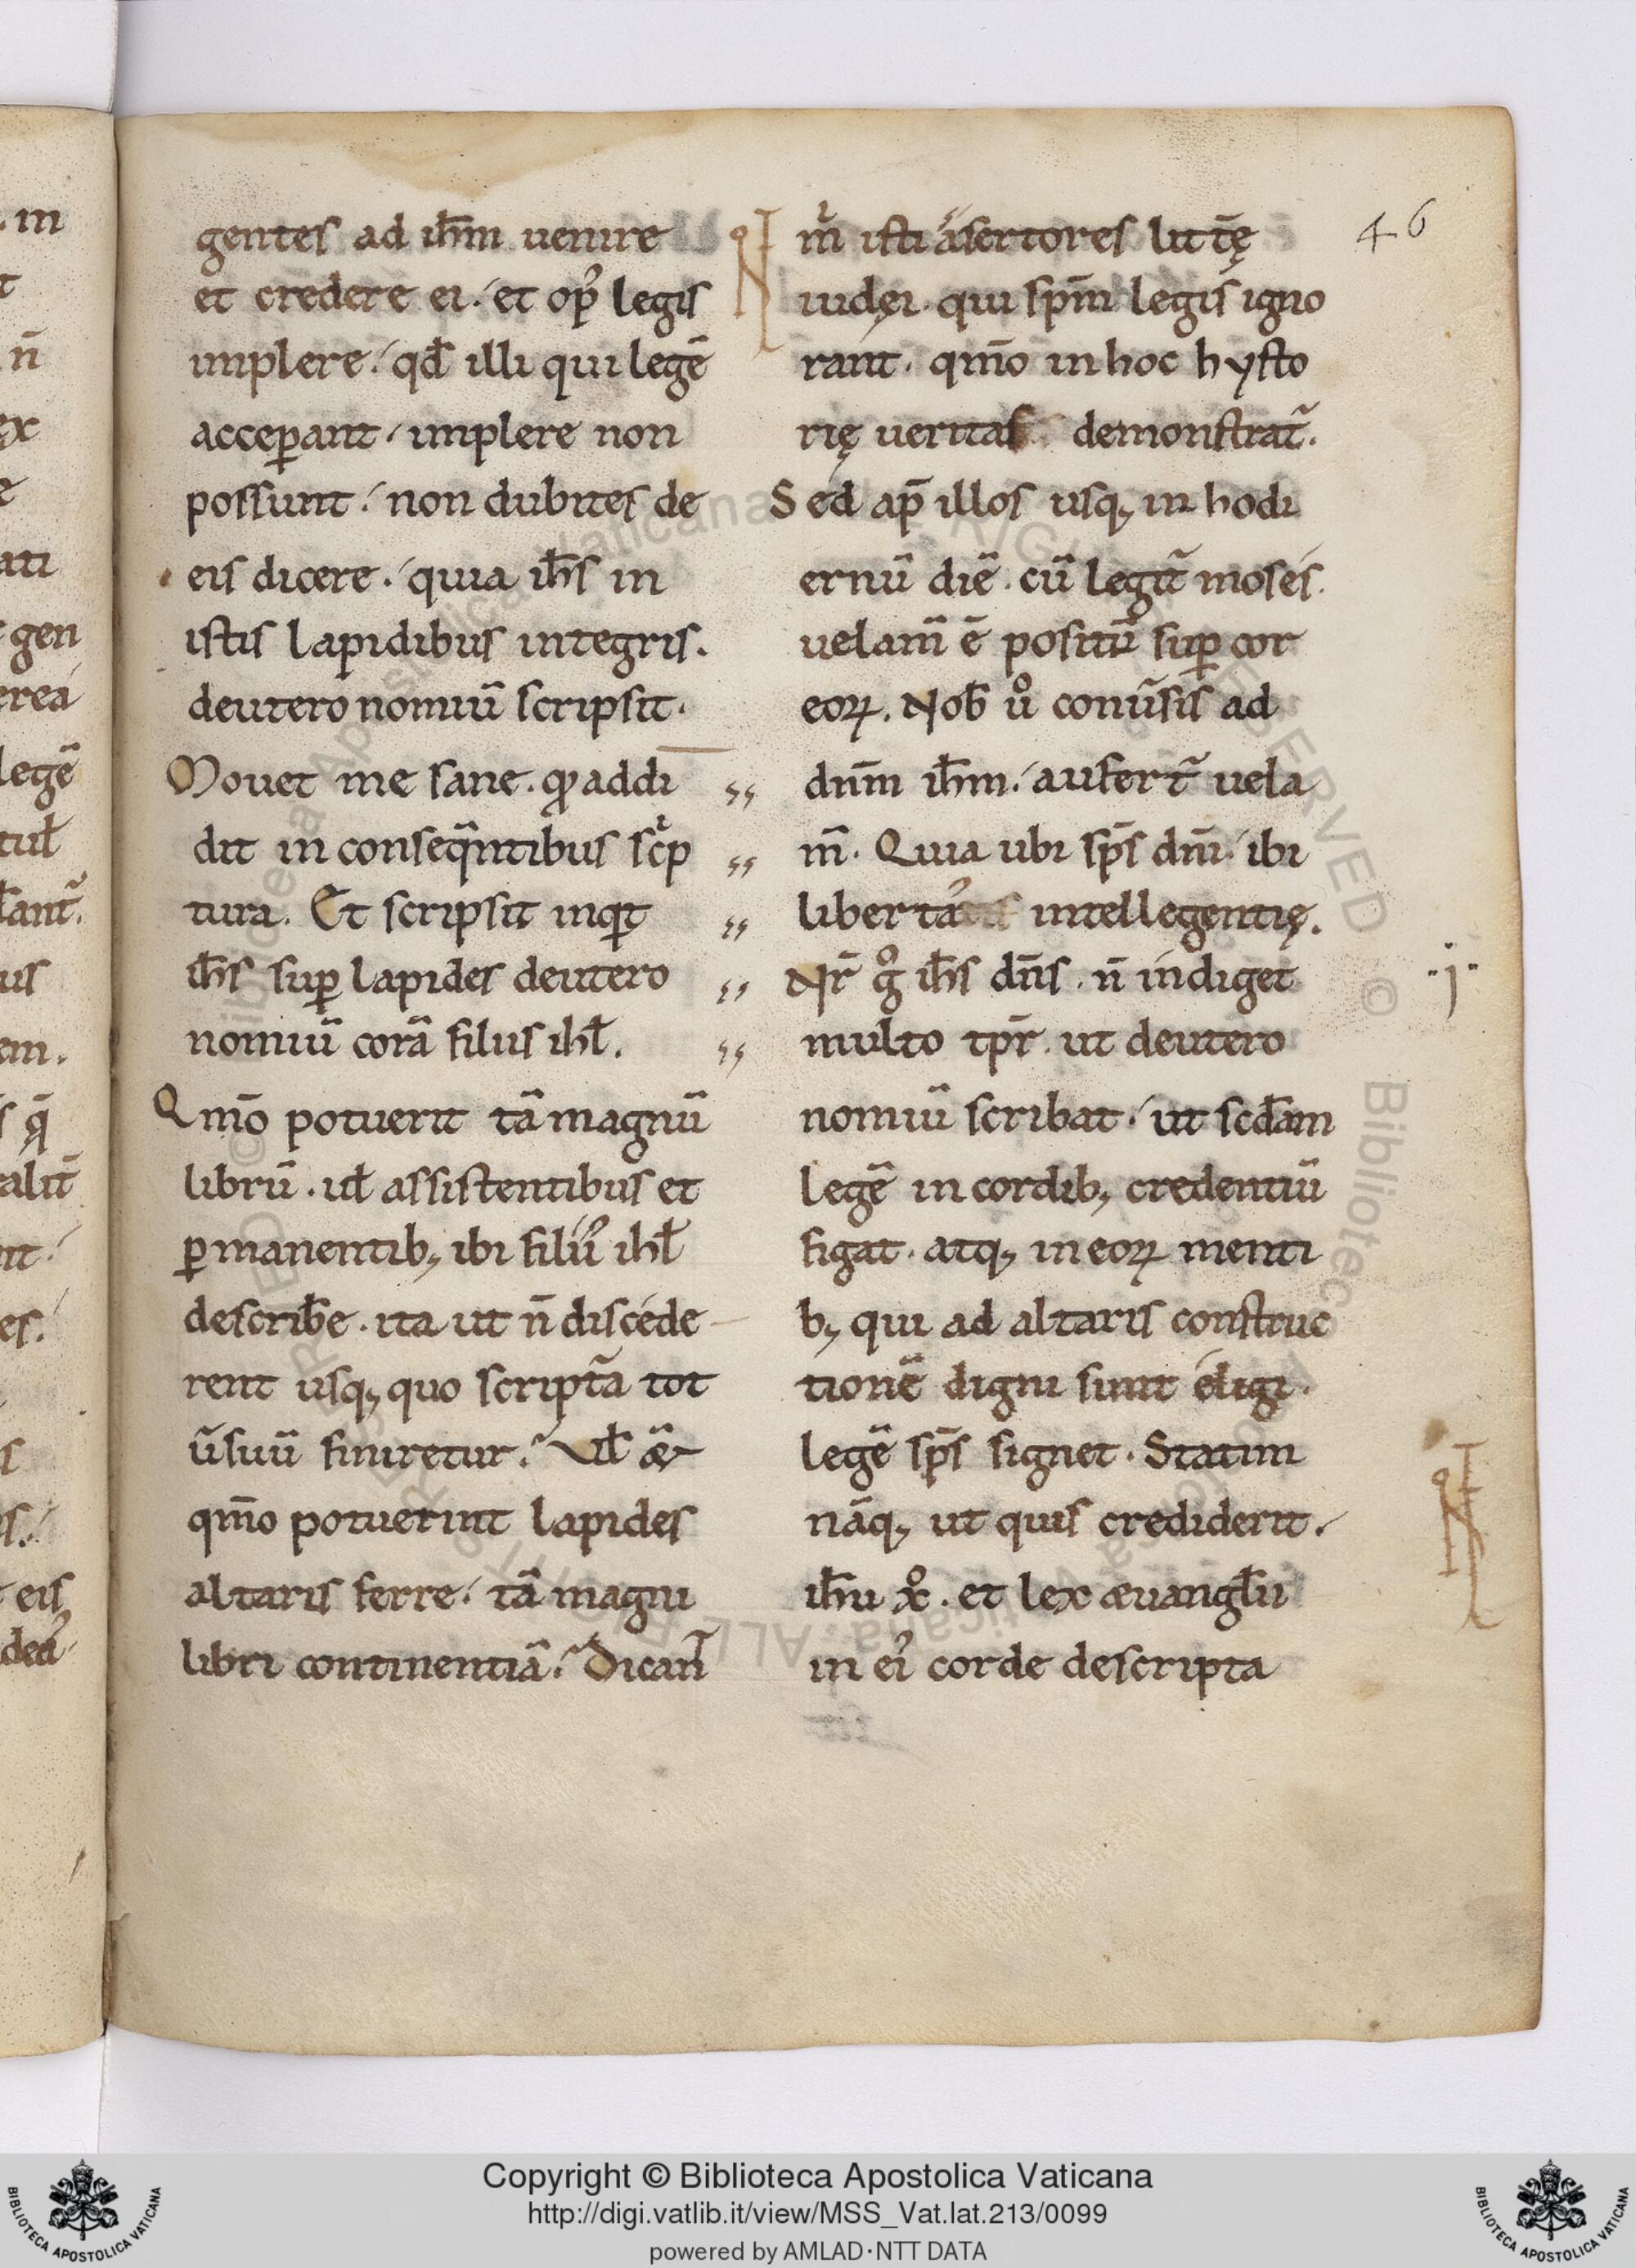 gentes ad ih̅m uenire
et credere ei. et op᾽ legis
implere. qd̅ illi qui legē
acceꝑant, implere non
possunt. non dubites de
eis dicere. quia ih̅s in
istis lapidibus integris.
deuteronomiū scripsit.
Mouet me sane. qđ addi
dit in conseq̅ntibus sc͛p
tura. Et scripsit inqt
ih̅s suꝑ lapides deutero
nomiū corā filiis ihl̅.
Qm̅o potuerit tā magnū
librū. ul̅ assistentibus et
ꝑmanentib; ibi filiis ihl̅
describ̅e. ita ut n̅ discede
rent usq; quo scriptā tot
ū̅suū finiretur. Vl̅ &
qm̅o potuerint lapides
altaris ferre. tā magni
libri continentiā. Dican̅
m̅ isti asertores litt̅ę
iudęi. qui sp̅m legis igno
rant. qm̅o in hoc hysto
rię ueritas demonstrat᷑.
Sed ap̅ illos usq; in hodi
ernū diē. cū legit᷑ moses.
uelam̅ ē positū suꝑ cor
eoꝝ. Nob̅ uͦ conu̅sis ad
dn̅m ih̅m. aufert᷑ uela
m̅. Quia ubi sp̅s dn̅i. ibi
libertas intellegentię.
Nr̅ gͦ ih̅s dn̅s. n̅ indiget
multo tp̅r. ut deutero
nomiū scribat. ut scd̅am
legē in cordib; credentiū
figat. atq; in eoꝝ menti
b; qui ad altaris construc
tionē digni sunt eligi.
legē sp̅s signet. Statim
nāq; ut quis crediderit.
ih̅u xͦ. et lex æuangl̅ii
in ei᾽ corde descripta
46
Copyright © Biblioteca Apostolica Vaticana
http://digi.vatlib.it/view/MSS_Vat.lat.213/0099
powered by AMLAD·NTT DATA
BIBLIOTECA APOSTOLICA VATICANA
BIBLIOTECA APOSTOLICA VATICANA